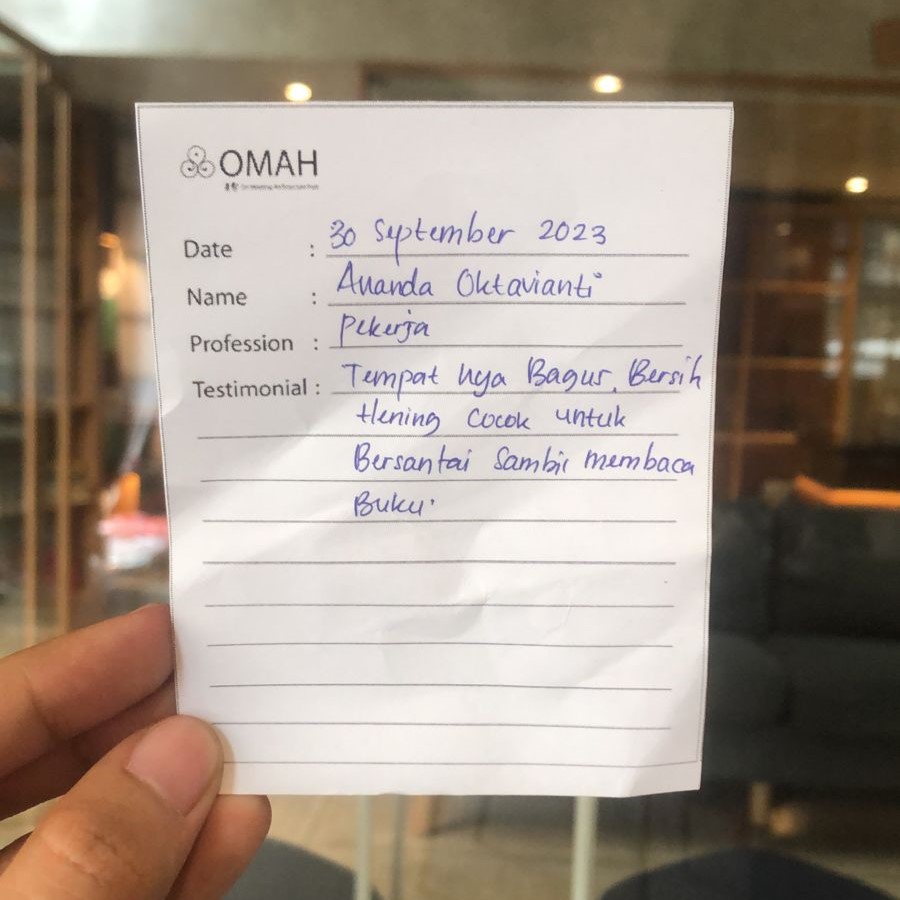 OMAH
Date : 30 September 2023
Name : Ananda Oktavianti
Profession : Pekerja
Testimonial : Tempat nya Bagus, Bersih
Hening Cocok untuk
Bersantai Sambil membaca
Buku.